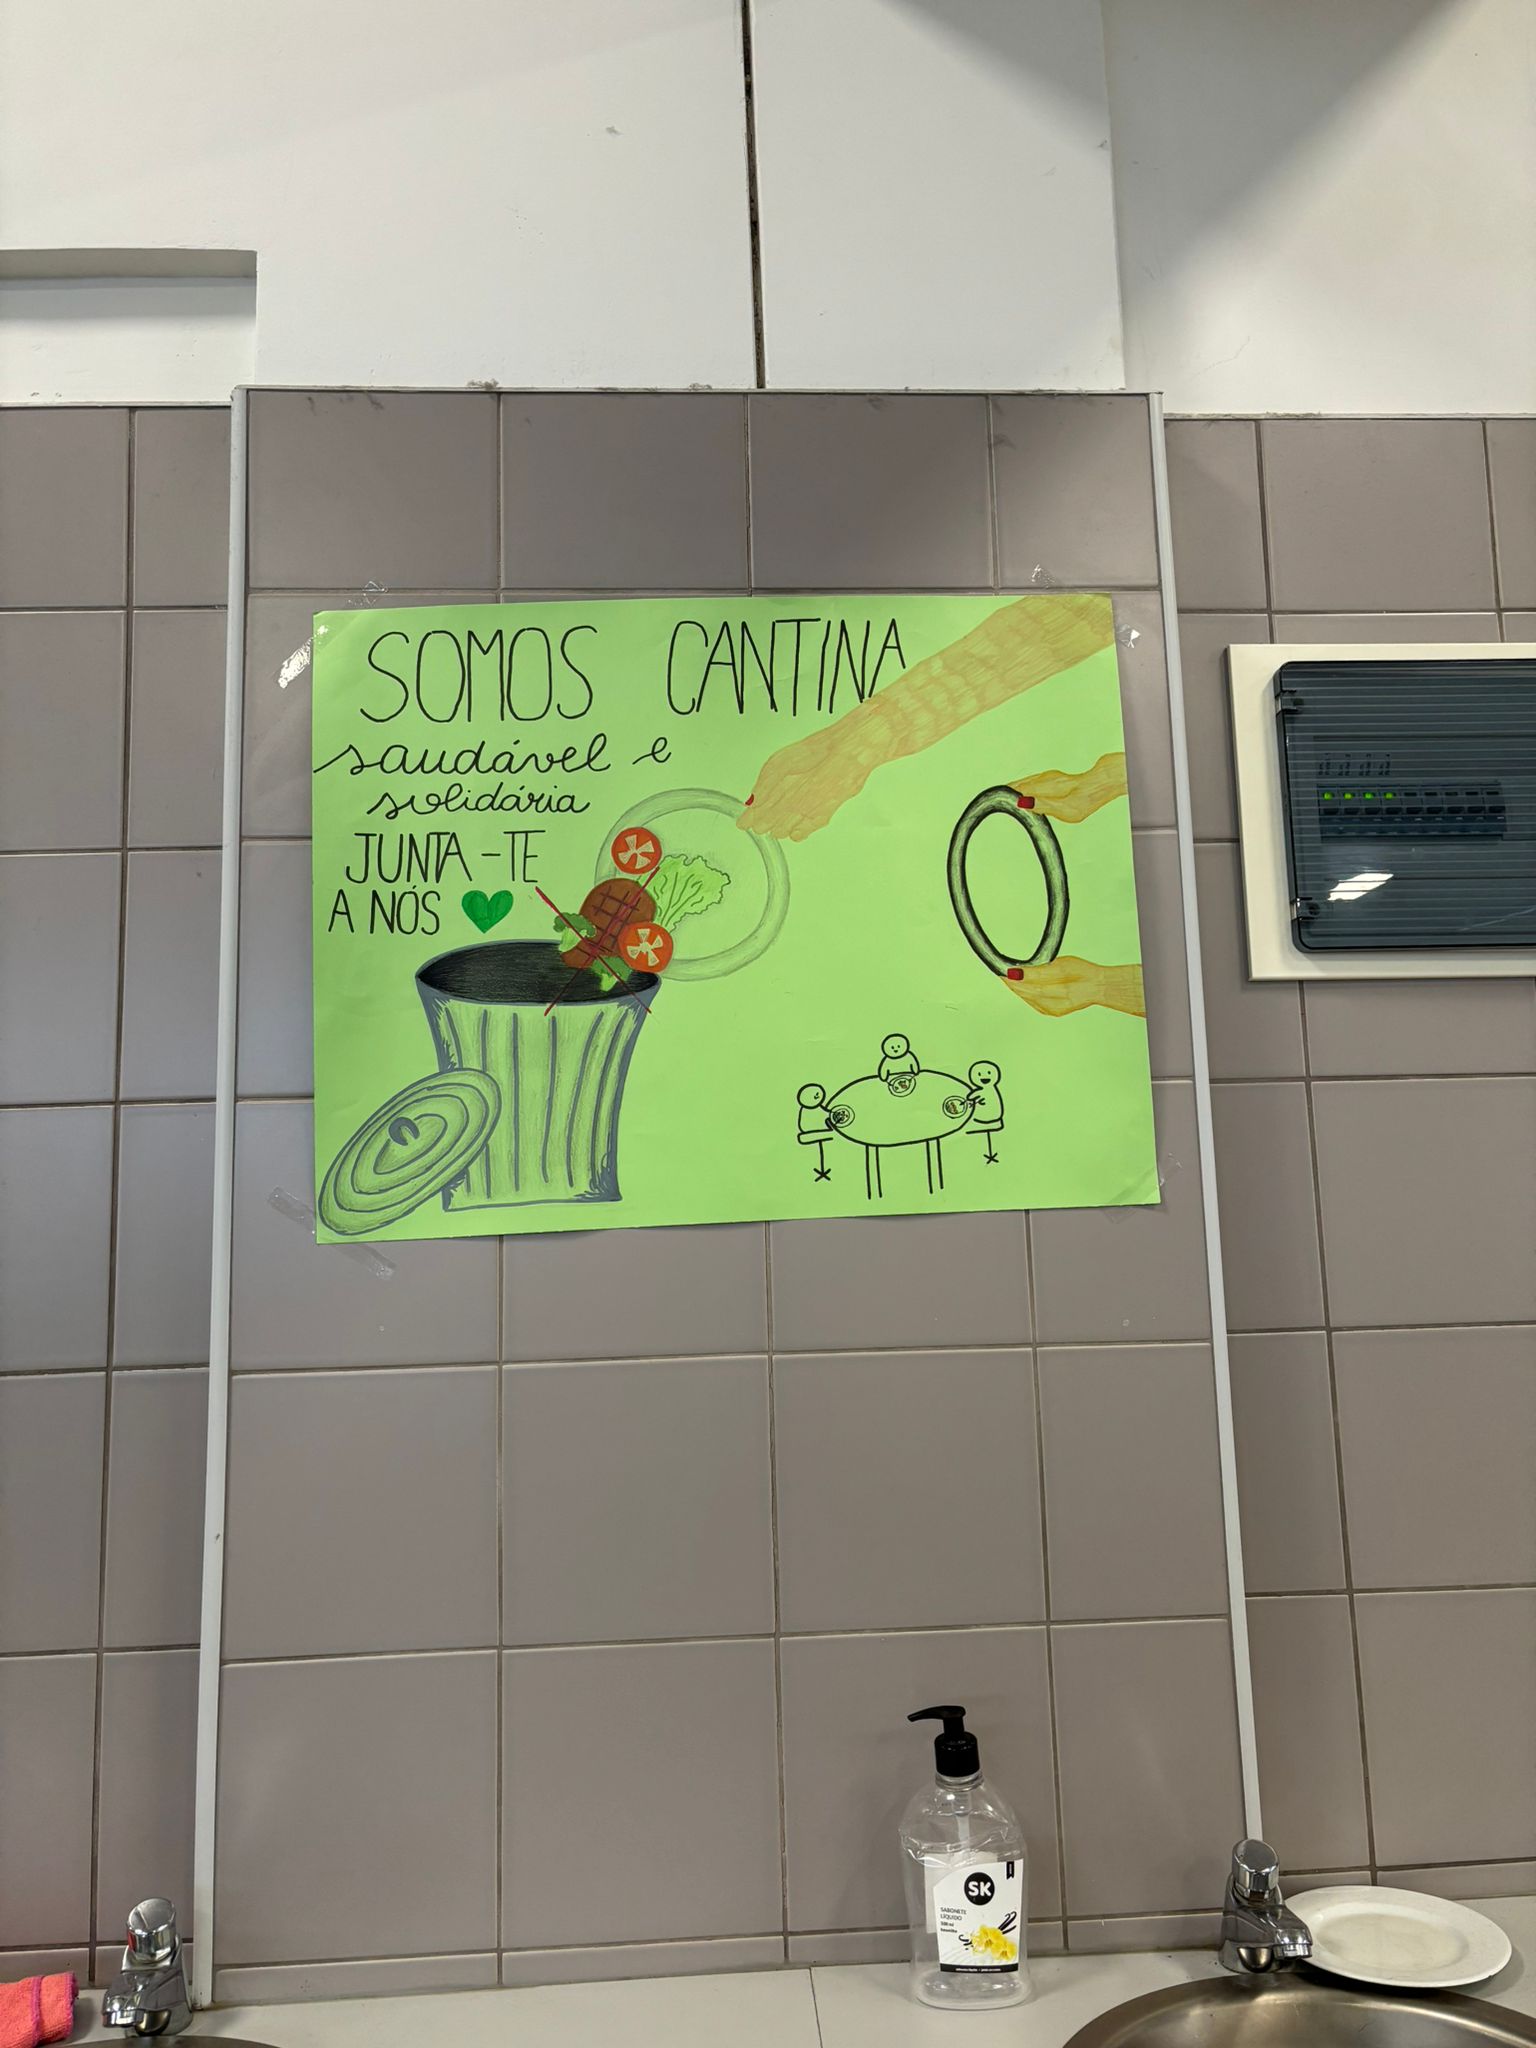 SOMOS CANTINA
saudável e
solidária
JUNTA-TE
A NÓS
SK
SABONETE
LÍQUIDO
500 ml
baunilha